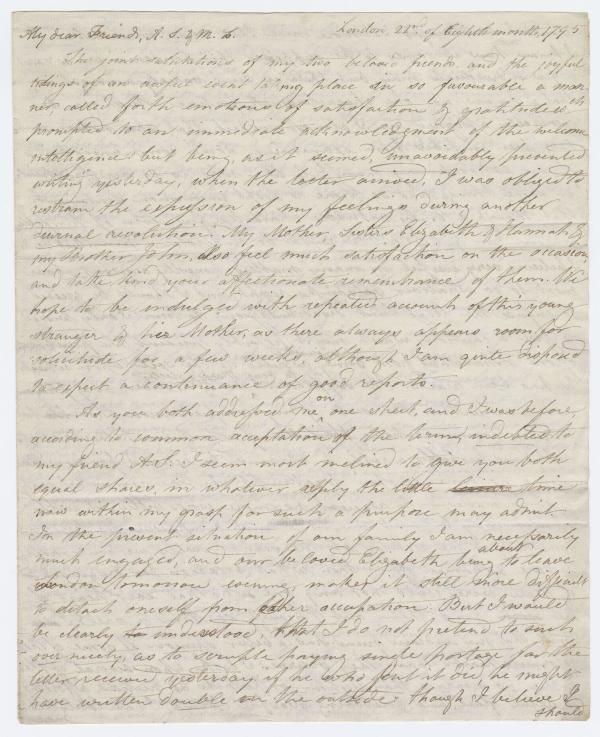 My dear Friends, A. S. & M. L.
London, 22nd of Eighth month, 1795
The joint salutations of my two beloved friends, and the joyful
tidings of an event taking place in so favourable a man-
ner, called forth emotions of satisfaction & gratitude wch
prompted to an immediate acknowledgment of the welcome
intelligence: but being, as it seemed, unavoidably prevented
writing yesterday, when the letter arrived, I was obliged to
restrain the expression of my feelings during another
diurnal revolution. My Mother, Sisters Elizabeth & Hannah &
my Brother John, also feel much satisfaction on the occasion,
and take kind your affectionate remembrance of them. We
hope to be indulged with repeated accounts of this young
stranger & her Mother, as there always appears room for
solicitude for a few weeks, although I am quite disposed
to expect a continuance of good reports.
As you both addressed me, on one sheet, and I was before,
according to common acceptation of the term, indebted to
my friend A. S. I seem most inclined to give you both
equal shares, in whatever reply the little time
now within my grasp for such a purpose may admit.
In the present situation of our family I am necessarily
much engaged, and our beloved Elizabeth being about to leave
London tomorrow evening, makes it still more difficult
to detach oneself from other occupation. But I would
be clearly to understood, that I do not pretend to such
over nicety, as to scruple paying single postage for the
letter received yesterday; if he who sent it did, he might
have written double on the outside: though I believe I
should